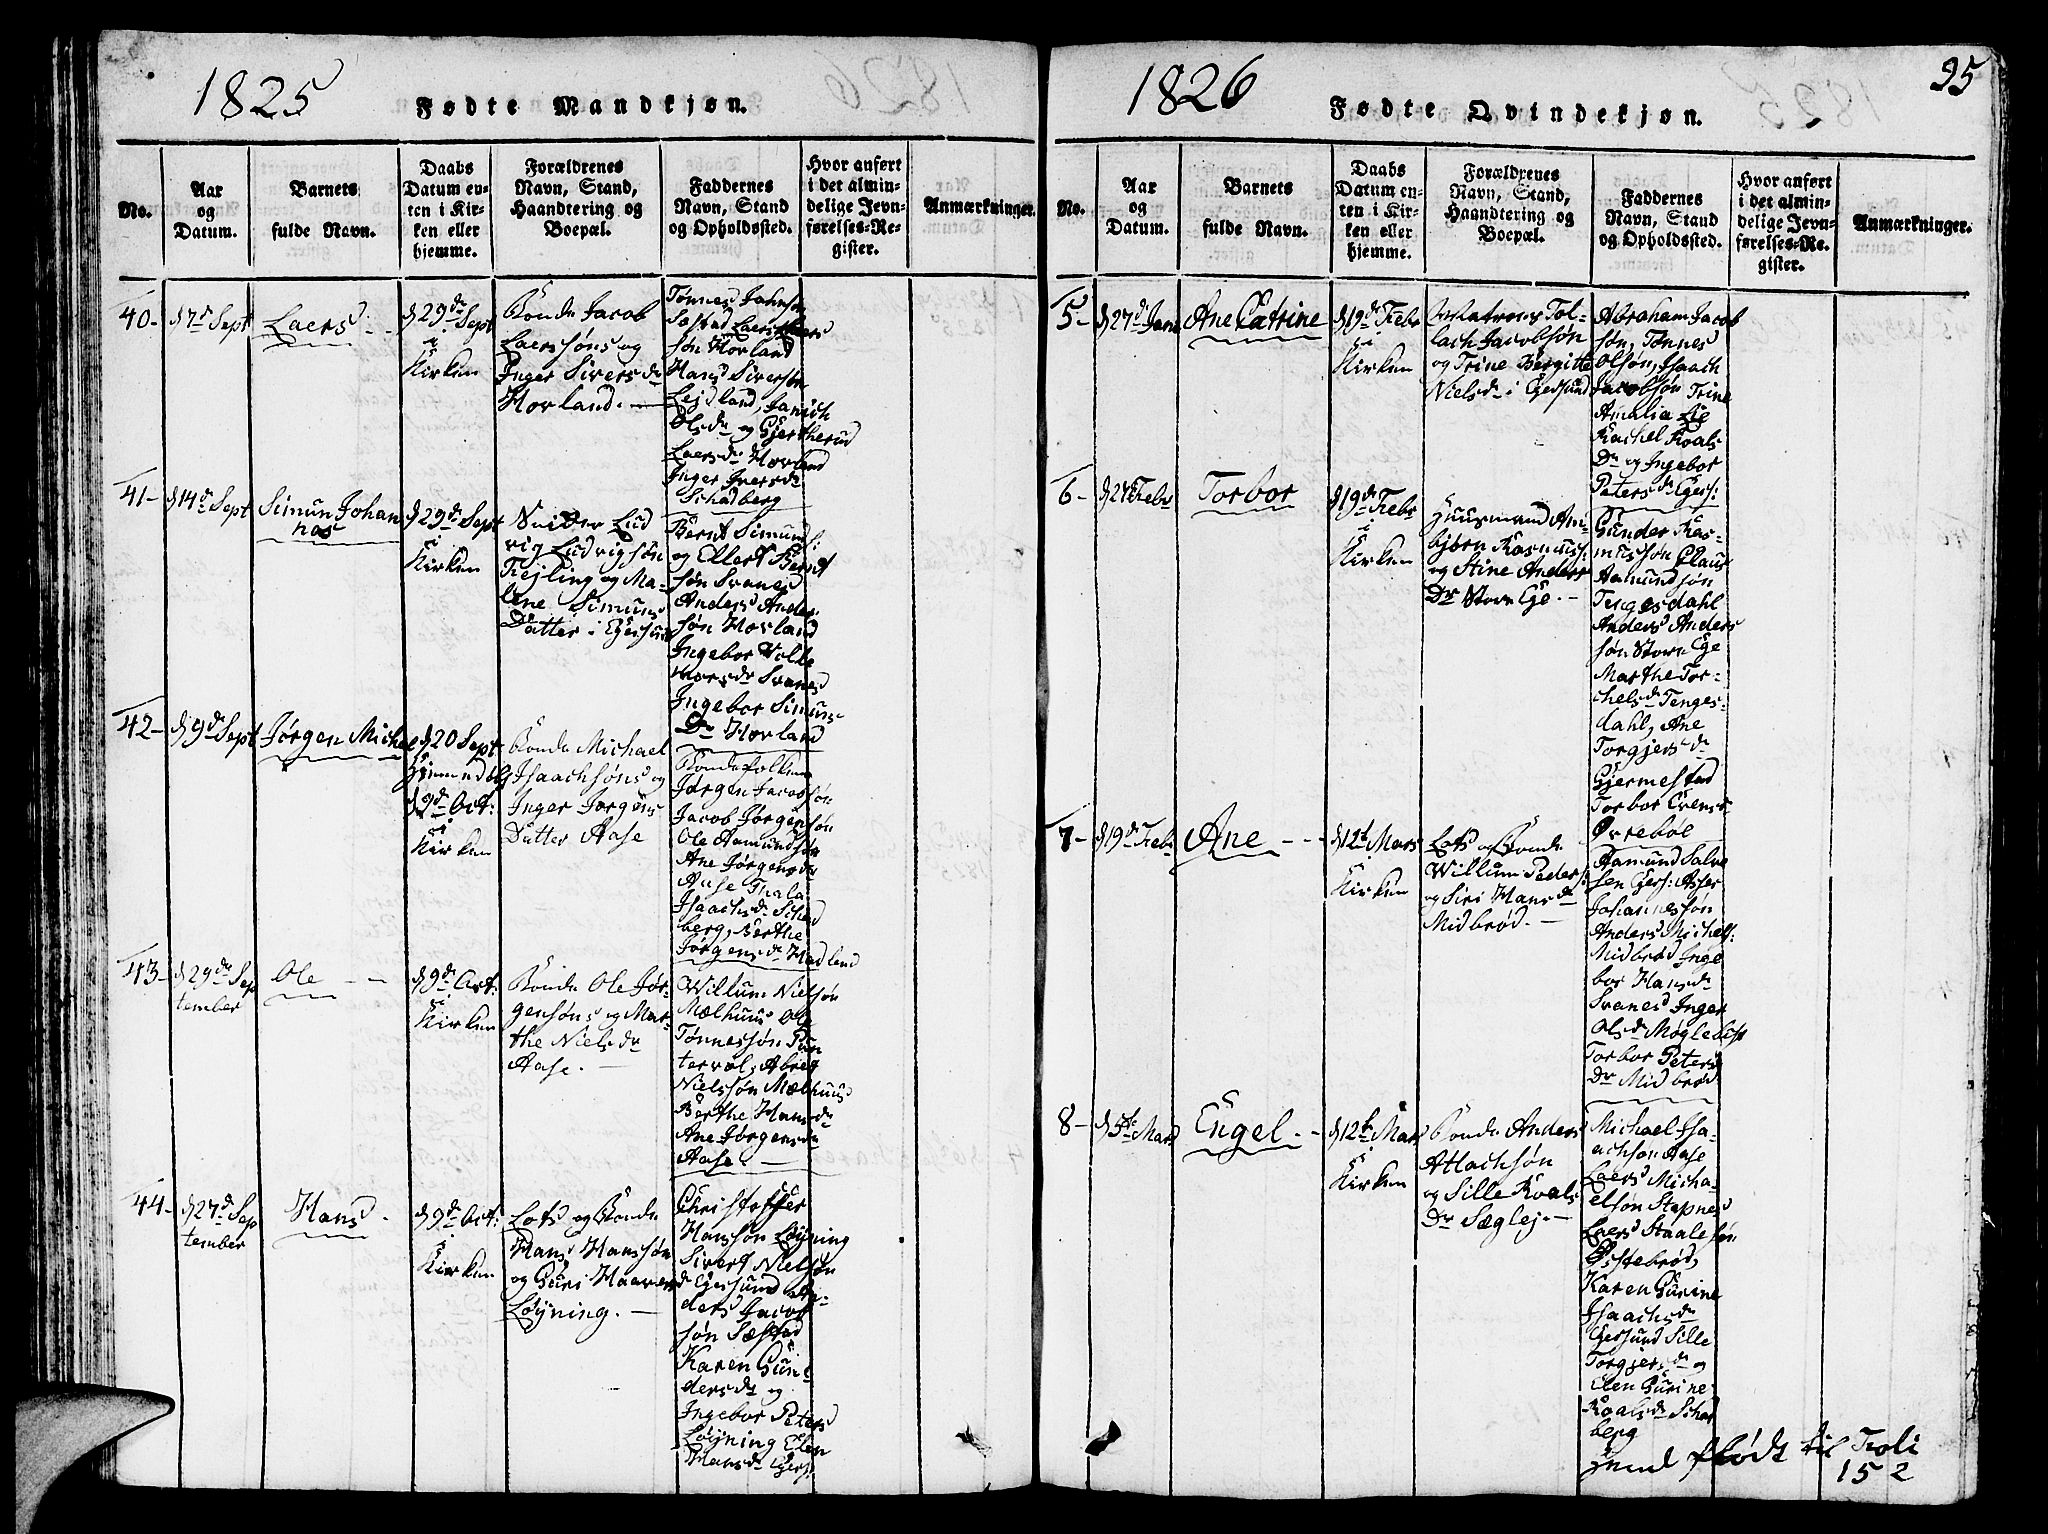 1825
Fødte Mandkjøn.
No.
Aar
og
Datum.
Barnets
fulde Navn.
Daabs
Datum en-
ten i Kir-
ken eller
hjemme.
Forældrenes
Navn, Stand,
Haandtering og
Boepæl.
Faddernes
Navn, Stand
og Opholdssted.
Hvor anført
i det almin-
delige Jevn-
førelses-Re-
gister.
Anmærkninger.
40-
d 7de Sept
Laers
d 29de Sept
i
Kirken
Bonde Jacob
Laerssøns og
Inger Sivers dr
Hovland.
Tønnes Johns
Laers
søn Hovland
Hans Siversøn
Lejdland, Janich
Ols dr og Gjertherud
Laers dr Hovland
Inger Ivers dr
Schadberg
41-
d 14de Sept
Simun Johan
nas
d 29de Sept
i
Kirken
Snider Lud
vig Ludvigsøn
Fejling og Ma-
lene Simuns
Datter i Egersund
Bernt Simunds:
og Ellert Bernt
søn Svanes
Anders Ander
søn Hovland
Ingebor Volle
mors dr Svanes
Ingebor Simuns
Dr Hovland
42-
d 9de Sept
Jørgen Michel
d 20 Sept
Hjemmedbt
d 9de Oct:
i
Kirken
Bonde Michael
Isaachsøns og
Inger Jørgens
Datter Aase
Bondefolkene
Jørgen Jacobsøn
Jacob Jørgensøn
Ole Aamundsøn
Ane Jørgens dr
Aase Thala
Isaachs dr Schad
berg, Berthe
Jørgens dr Hadland
43-
d 29de Sep
tember
Ole
d 9de Oct:
i
Kirken
Bonde Ole Jør-
gensøns og Mar-
the Niels dr
Aase.
Willum Nielsøn
Mælhuus Ole
Tønnessøn Pun
tervol, Abreg
Nielssøn Mælhuus
Berthe Hans dr
Ane Jørgens dr
Aase.
44-
d 27de Sep
tember
Hans
d 9de Oct:
i
Kirken
Lots og Bonde
Hans Hanssøn
og Guri Haavers d
Løyning.
Christoffer
Hanssøn Løyning
Sivert Nielsøn
Egersund An-
ders Jacob
søn Sæstad
Karen Gun-
ders dr og
Ingebor Peters
Løyning Elen
Hans dr Egers:
1826
95
Fødte Qvindekjøn.
No.
Aar
og
Datum.
Barnets
fulde Navn.
Daabs
Datum en-
ten i Kir-
ken eller
hjemme.
Forældrenes
Navn, Stand,
Haandtering og
Boepæl.
Faddernes
Navn, Stand
og Opholdssted.
Hvor anført
i det almin-
delige Jevn-
førelses-Re-
gister.
Anmærkninger.
5-
d 27de Jan
Ane Catrine
d 19de Febr
i
Kirken
Matros Tol-
lach Jacobsøn
og Trine Bergitte
Niels dr i Egersund
Abraham Jacob
søn, Tønnes
Olsøn, Isaach
Jacobsøn Trine
Amalia Lie
Rachel Roals
Dr og Ingebor
Peters dr Egers:
6-
d 2de Febr
Torbor
d 19de Febr
i
Kirken
Huusmand Am-
bjørn Rasmuss:
og Stine Anders
Dr Store Ege.
Gunder Ras-
mussøn Claus
Aamundsøn
Tengesdahl
Anders Anders
søn Store Ege
Marthe Tor-
chels dr Tenges-
dahl, Ane
Torgjers dr
Gjermestad
Torbor Evens
Ørrebøe
7-
d 19de Febr
Ane
d 12te Mars
i
Kirken
Lots og Bonde
Willum Peders:
og Siri Hans dr
Midbrød.
Aamund Salve
sen Egers: Asser
Johannessøn
Anders Michels:
Midbrød Inge
bor Hans dr
Svanes Inger
Ols dr Møglebøst
Torbor Peters
Dr Midbrød
8-
d 5te Mars
Engel
d 12te Mars
i
Kirken
Bonde Anders
Atlachsøn
og Sille Roals
Dr Sæglej
Michael Isa-
achsøn Aase
Laers Micha-
elsøn Stapnes
Laers Staalesøn
Østebrød,
Karen Gurine
Isaachs dr
Egersund Sille
Torgjers dr og
Elen Gurine
Roals dr Schad
berg
flødt til Foli
152